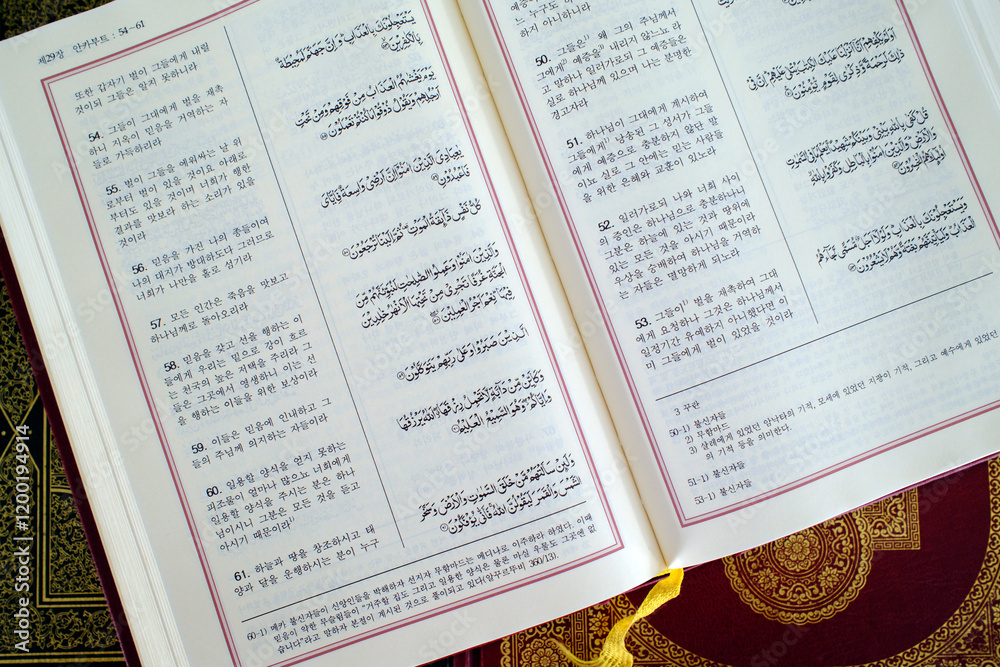 는 누구도
하지 아니하니라
50. 그들은 왜 그의 주님께서
그에게 예증을 내리지 않느뇨 라
고 말하나 일러가로되 그 예증들은
실로 하나님께 있으며 나는 분명한
경고자라
51. 하나님이 그대에게 계시하여
그들에게 낭송된 그 성서가 그들
에게 예증으로 충분하지 않단 말
이뇨 실로 그 안에는 믿는 사람들
을 위한 은혜와 교훈이 있노라
52. 일러가로되 나와 너희 사이
의 증인은 하나님으로 충분하나니
그분은 하늘에 있는 것과 땅위에
있는 모든 것을 아시기 때문이라
우상을 숭배하여 하나님을 거역하
는 자들은 멸망하게 되노라
53. 그들이 벌을 재촉하여 그대
에게 요청하나 그것은 하나님께서
일정기간 유예하지 아니했다면 이
미 그들에게 벌이 있었을 것이라
أَوَلَمْ يَكْفِهِمْ أَنَّا أَنزَلْنَا عَلَيْكَ ٱلْكِتَٰبَ يُتْلَىٰ عَلَيْهِمْ إِنَّ فِى
ذَٰلِكَ لَرَحْمَةً وَذِكْرَىٰ لِقَوْمٍ يُؤْمِنُونَ ۝
قُلْ كَفَىٰ بِٱللَّهِ بَيْنِى وَبَيْنَكُمْ شَهِيدًا يَعْلَمُ مَا فِى ٱلسَّمَٰوَٰتِ
وَٱلْأَرْضِ وَٱلَّذِينَ ءَامَنُوا۟ بِٱلْبَٰطِلِ وَكَفَرُوا۟ بِٱللَّهِ أُو۟لَٰٓئِكَ هُمُ
ٱلْخَٰسِرُونَ ۝
وَيَسْتَعْجِلُونَكَ بِٱلْعَذَابِ وَلَوْلَآ أَجَلٌ مُّسَمًّى لَّجَآءَهُمُ
ٱلْعَذَابُ وَلَيَأْتِيَنَّهُم بَغْتَةً وَهُمْ لَا يَشْعُرُونَ ۝
50-1) 불신자들
2) 무함마드
3) 살레에게 있었던 암낙타의 기적, 모세에 있었던 지팡이 기적, 그리고 예수에게 있었던
의 기적 등을 의미한다.
51-1) 불신자들
53-1) 불신자들
제29장 안카부트 : 54-61
또한 갑자기 벌이 그들에게 내릴
것이되 그들은 알지 못하니라
54. 그들이 그대에게 벌을 재촉
하니 지옥이 믿음을 거역하는 자
들로 가득하리라
55. 벌이 그들을 에워싸는 날 위
로부터 벌이 있을 것이요 아래로
부터도 있을 것이며 너희가 행한
결과를 맛보라 하는 소리가 있을
것이라
56. 믿음을 가진 나의 종들이여
나의 대지가 방대하도다 그러므로
너희가 나만을 홀로 섬기라
57. 모든 인간은 죽음을 맛보고
하나님께로 돌아오리라
58. 믿음을 갖고 선을 행하는 이
들에게 우리는 밑으로 강이 흐르
는 천국의 높은 저택을 주리라 그
들은 그곳에서 영생하니 이는 선
을 행하는 이들을 위한 보상이라
59. 이들은 믿음에 인내하고 그
들의 주님께 의지하는 자들이라
60. 일용할 양식을 얻지 못하는
피조물이 얼마나 많으뇨 너희에게
일용할 양식을 주시는 분은 하나
님이시니 그분은 모든 것을 듣고
아시기 때문이라
61. 하늘과 땅을 창조하시고 태
양과 달을 운행하시는 분이 누구
يَسْتَعْجِلُونَكَ بِٱلْعَذَابِ وَإِنَّ جَهَنَّمَ لَمُحِيطَةٌۢ
بِٱلْكَٰفِرِينَ ۝
يَوْمَ يَغْشَىٰهُمُ ٱلْعَذَابُ مِن فَوْقِهِمْ وَمِن تَحْتِ
أَرْجُلِهِمْ وَيَقُولُ ذُوقُوا۟ مَا كُنتُمْ تَعْمَلُونَ ۝
يَٰعِبَادِىَ ٱلَّذِينَ ءَامَنُوٓا۟ إِنَّ أَرْضِى وَٰسِعَةٌ فَإِيَّٰىَ
فَٱعْبُدُونِ ۝
كُلُّ نَفْسٍ ذَآئِقَةُ ٱلْمَوْتِ ثُمَّ إِلَيْنَا تُرْجَعُونَ ۝
وَٱلَّذِينَ ءَامَنُوا۟ وَعَمِلُوا۟ ٱلصَّٰلِحَٰتِ لَنُبَوِّئَنَّهُم مِّنَ
ٱلْجَنَّةِ غُرَفًا تَجْرِى مِن تَحْتِهَا ٱلْأَنْهَٰرُ خَٰلِدِينَ
فِيهَا نِعْمَ أَجْرُ ٱلْعَٰمِلِينَ ۝
ٱلَّذِينَ صَبَرُوا۟ وَعَلَىٰ رَبِّهِمْ يَتَوَكَّلُونَ ۝
وَكَأَيِّن مِّن دَآبَّةٍ لَّا تَحْمِلُ رِزْقَهَا ٱللَّهُ يَرْزُقُهَا
وَإِيَّاكُمْ وَهُوَ ٱلسَّمِيعُ ٱلْعَلِيمُ ۝
وَلَئِن سَأَلْتَهُم مَّنْ خَلَقَ ٱلسَّمَٰوَٰتِ وَٱلْأَرْضَ وَسَخَّرَ
ٱلشَّمْسَ وَٱلْقَمَرَ لَيَقُولُنَّ ٱللَّهُ فَأَنَّىٰ يُؤْفَكُونَ ۝
60-1) 메카 불신자들이 신앙인들을 박해하자 선지자 무함마드는 메디나로 이주하라 하였다. 이때
믿음이 약한 무슬림들이 "거주할 집도 그리고 일용할 양식은 물론 마실 우물도 그곳엔 없
습니다"라고 말하자 본절이 계시된 것으로 풀이되고 있다(알꾸르투비 360/13).
Adobe Stock | #1200194914